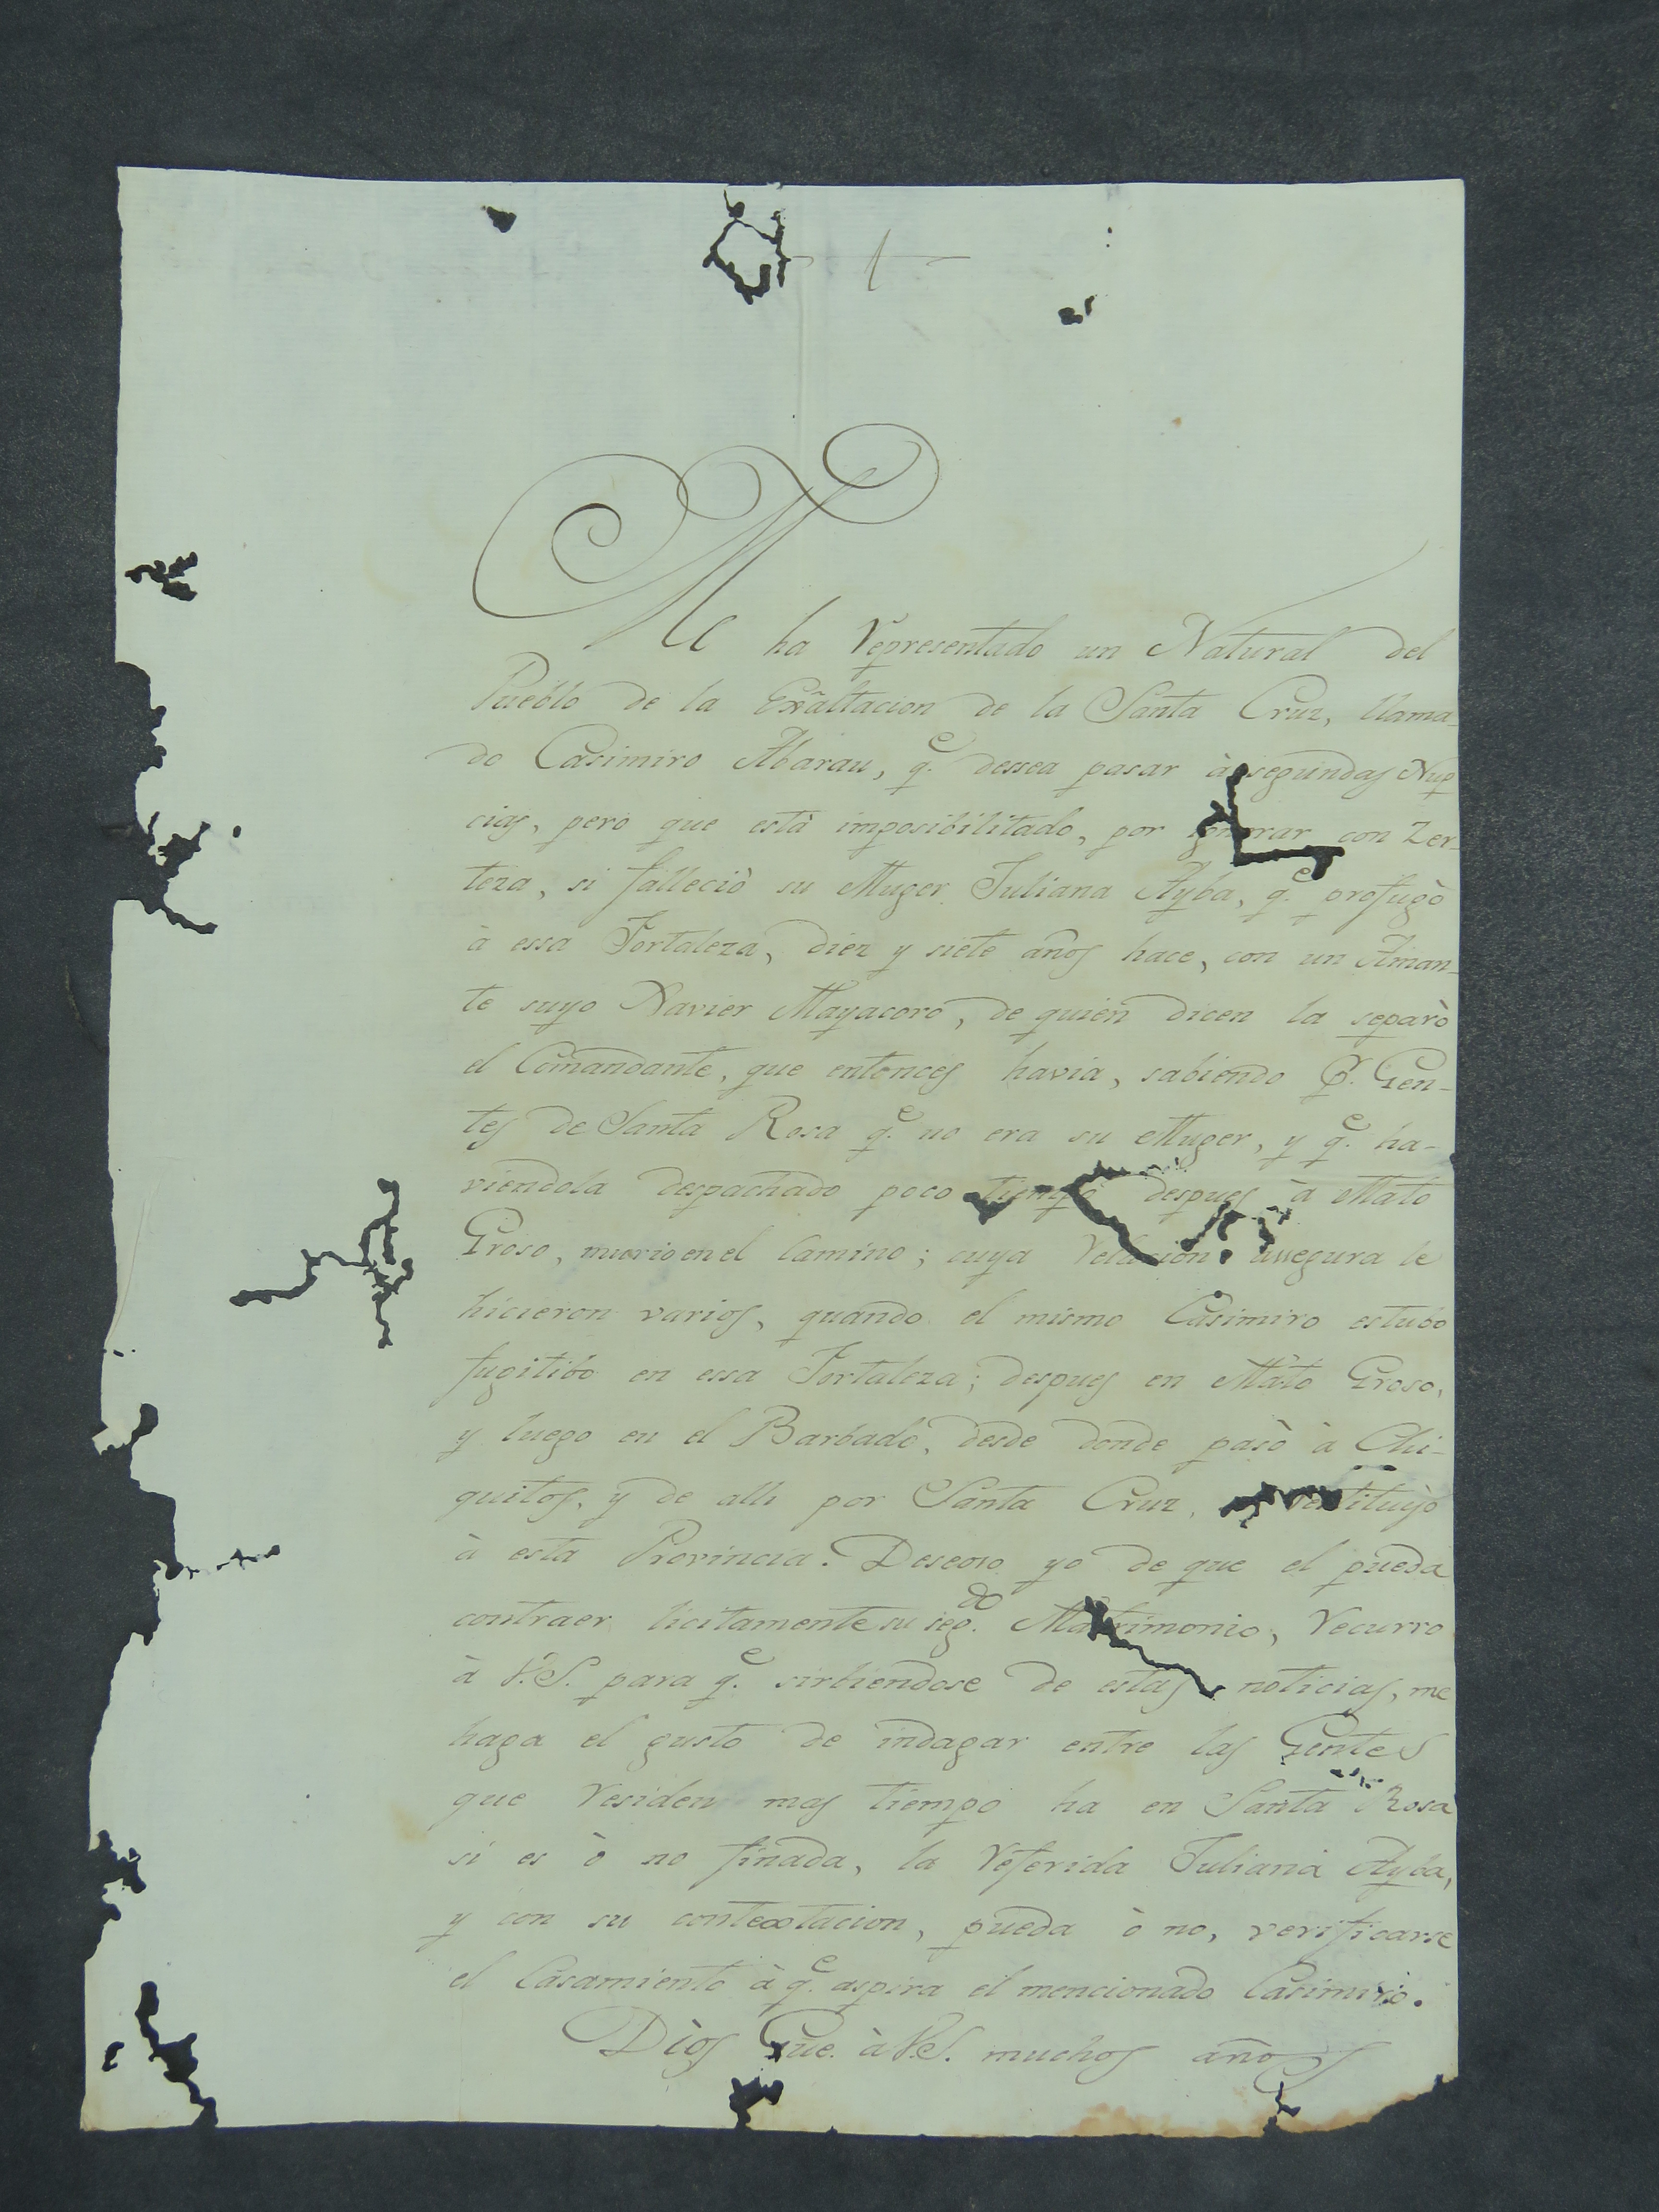 Me ha Representado un Natural del
Pueblo de la Exâltacion de la Santa Cruz, llama-
do Casimiro Abarau, q.e dessea pasar à segundas Nup
cias, pero que està imposibilitado, por ignorar con Zer-
teza, si falleciò su Muger Juliana Ayba, q.e profugò
à essa Fortaleza, diez y siete años hace, con un Aman-
te suyo Xavier Mayacoro, de quien dicen la separò
el Comandante, que entonces havia, sabiendo p.r Gen-
tes de Santa Rosa q.e no era su Muger, y q.e ha-
viendola despachado poco tiempo despues à Mato
Groso, murio en el Camino; cuya Relacion assegura le
hicieron varios, quando el mismo Casimiro estubo
fugitibo en essa Fortaleza; despues en Mato Groso,
y luego en el Barbado, desde donde pasò à Chi-
quitos, y de alli por Santa Cruz, restituyò
à esta Provincia. Deseoso yo de que el pueda
contraer licitamente su seg.do Matrimonio, Recurro
à V.S. para q.e sirbiendose de estas noticias, me
haga el gusto de indagar entre las Gentes
que Residen mas tiempo ha en Santa Rosa
si es ò no finada, la Referida Juliana Ayba,
y con su contextacion, pueda ò no, verificarse
el Casamiento à q.e aspira el mencionado Casimiro.
Dios Gue. à V.S. muchos años